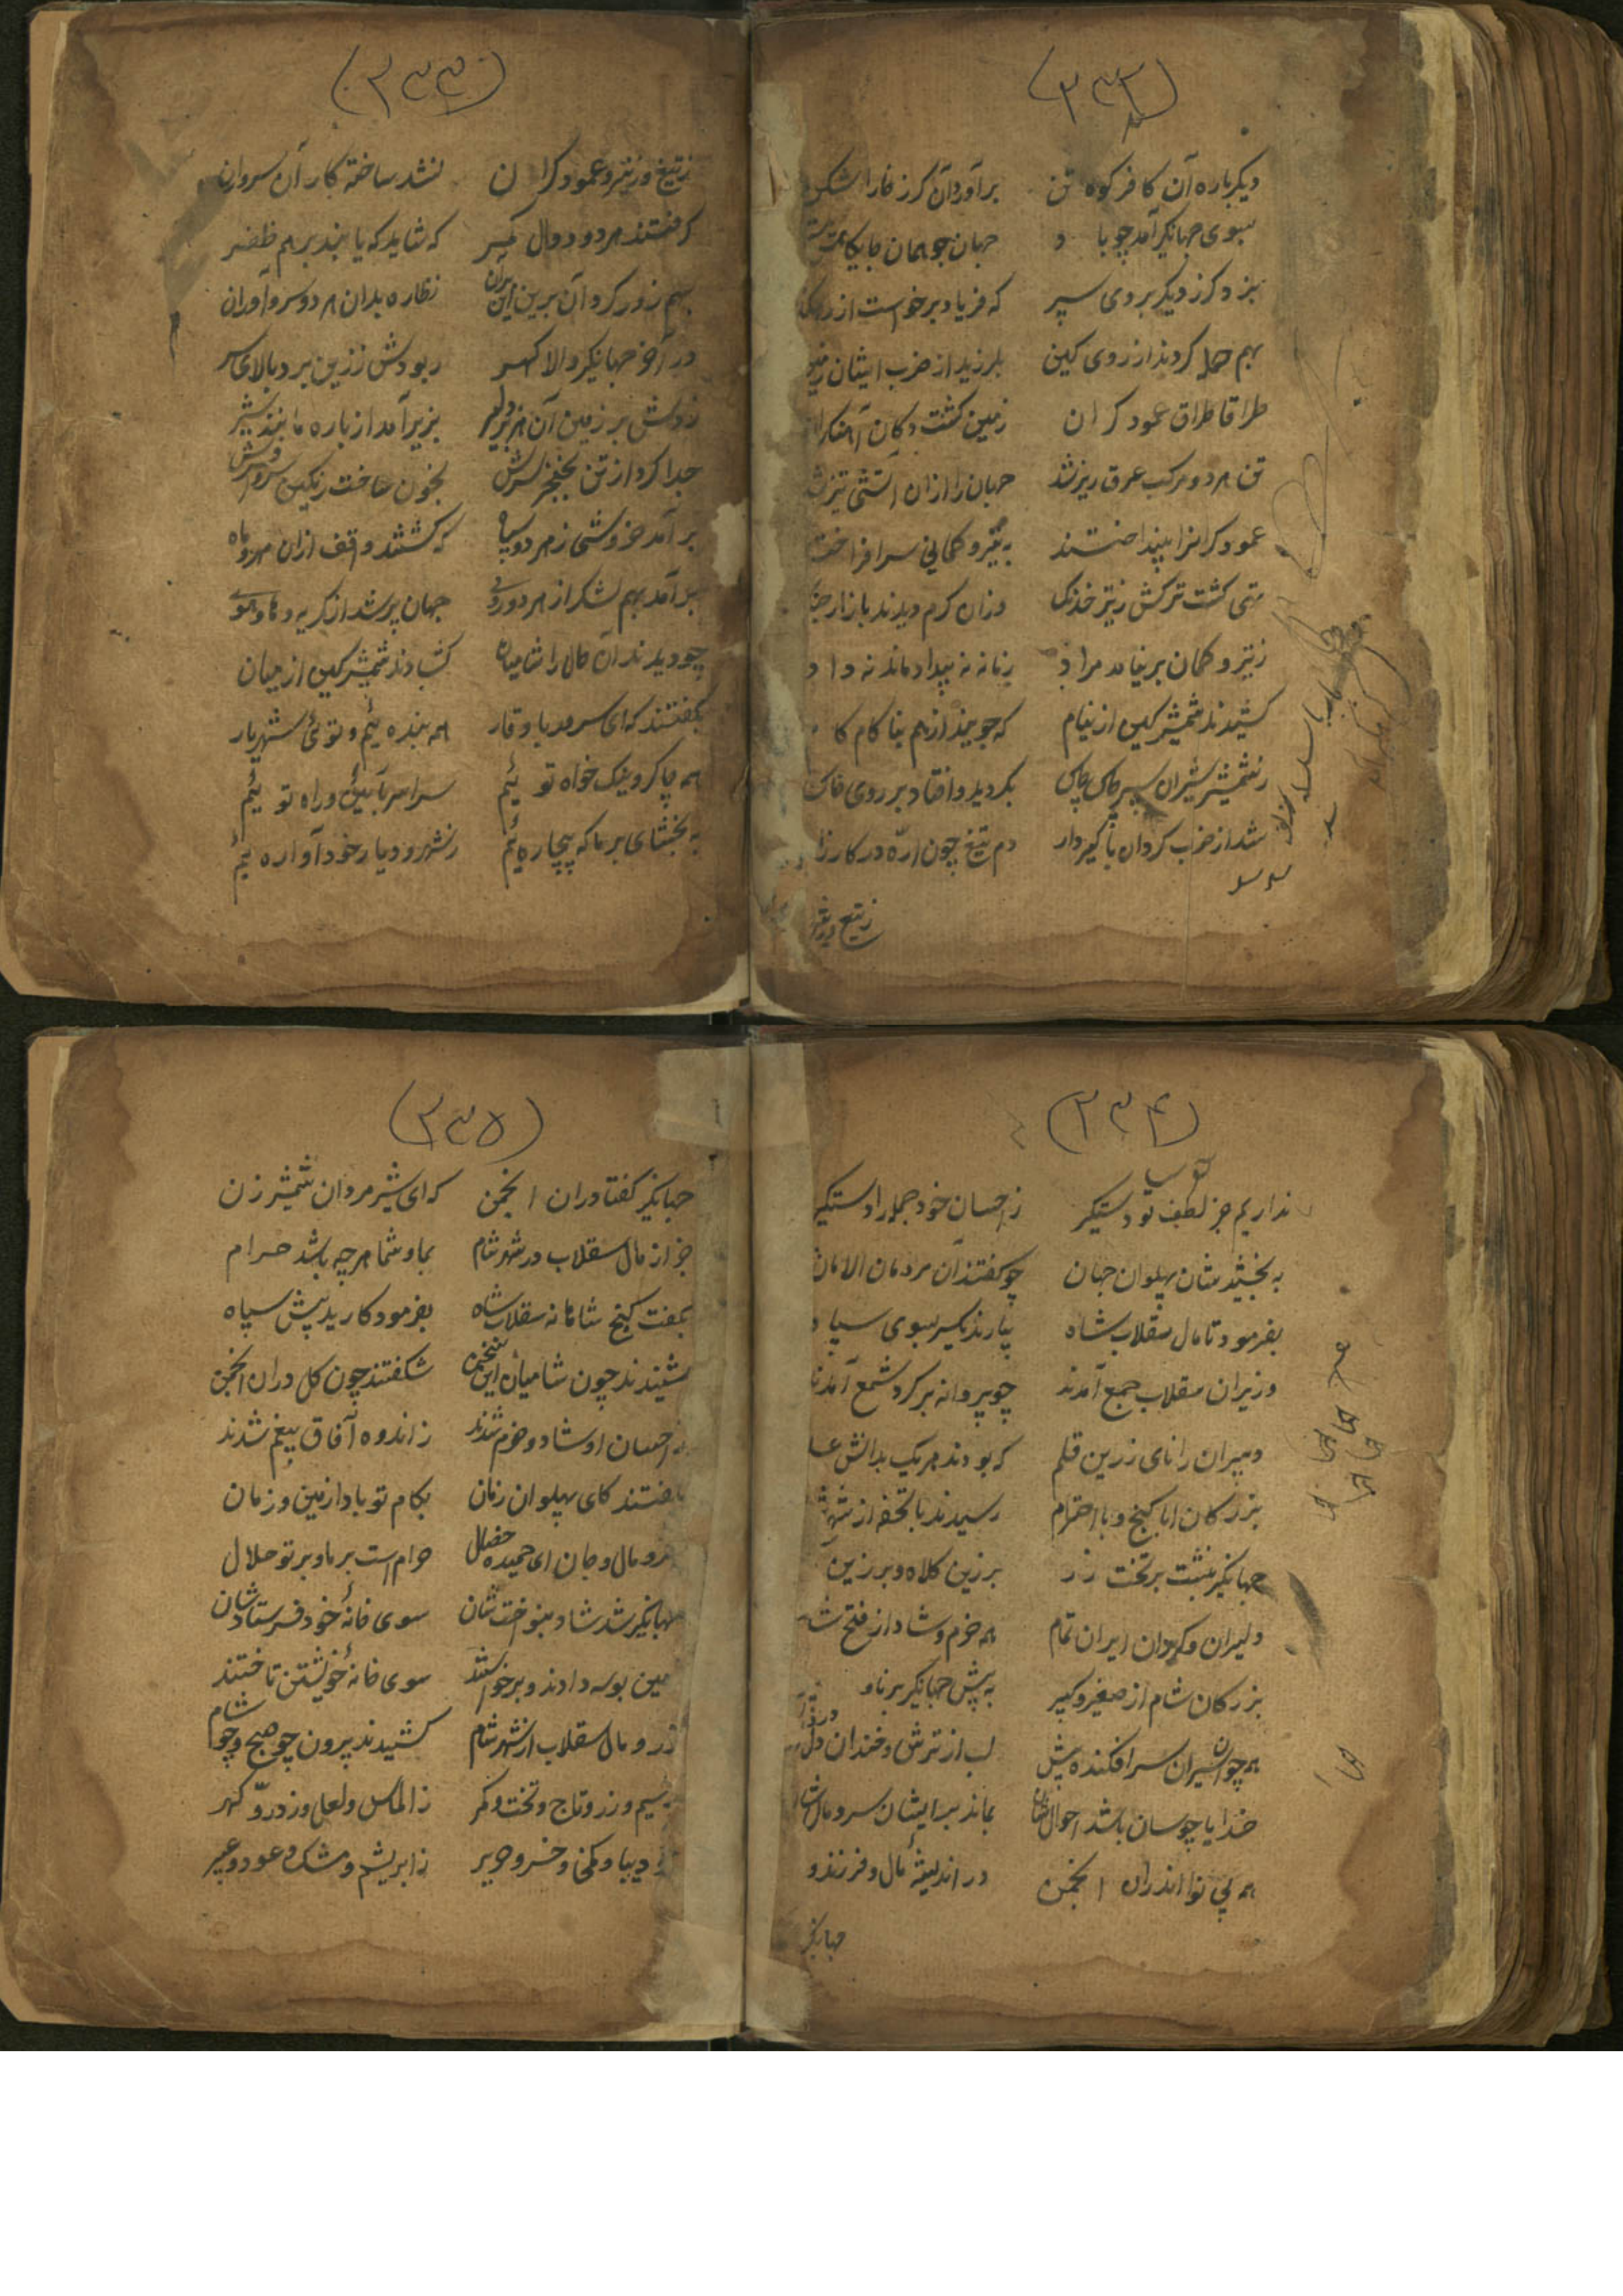 (۲۳۲)
دیکر باره آن کافر کوه تن برآورد آن کرز خارا شکن
بسوی جهانکیر آمد چو باد جهان جو همان جایکه
بزد کرز دیکر بروی سپر که فریاد برخواست از
بهم حمله کردند از روی کین بلرزید از ضرب ایشان زمین
طراقا طراق عمود کران زمین کشت دکان آهنکران
تن هر دو مرکب عرق ریز شد جهان را ازان آتشی تیز شد
عمود کرانرا بینداختند به تیر و کمانی سر افراختند
تهی کشت ترکش ز تیر خدنک وزان کرم دیدند بازار جنک
ز تیر و کمان بر نیامد مراد زمانه نه بیداد ماند نه داد
کشیدند شمشیر کین از نیام که جویند از هم بنا کام کام
ز شمشیر شیران سپر چاک چاک بکردید و افتاد بر روی خاک
شد از ضرب کردان با کیر دار دم تیغ چون ارّه در کارزار
ز تیغ و ز تیر
(۲۳۳)
ز تیغ و ز تیر و عمود کران نشد ساخته کار آن سروران
کرفتند هر دو دوال کمر که شاید که یابند بر هم ظفر
بهم زور کرد آن برین این بران نظاره بدان هر دو سر و آوران
در آخر جهانکیر والا کهر ربودش ز زین برد بالای سر
زدش بر زمین آن هژبر دلیر بزیر آمد از باره مانند شیر
جدا کرد از تن بخنجر سرش بخون ساخت رنکین سر و افسرش
بر آمد خروشی ز هر دو سپاه که کشتند واقف ازان مهر و ماه
برآمد بهم لشکر از هر دو روی جهان پر شد از کریه و های و هوی
چو دیدند آن حال را شامیان کشادند شمشیر کین از میان
بکفتند که ای سرور با وقار همه بنده ئیم و توئی شهریار
همه چاکر و نیک خواه تو ئیم سراسر بآیین و راه تو ئیم
به بخشای بر ما که بیچاره ئیم ز شهر و دیار خود آواره ئیم
(۲۳۴)
نداریم جز لطف تو دستکیر ز احسان خود جمله را دستکیر
به بخشیدشان پهلوان جهان چو کفتند آن مردمان الامان
بفرمود تا مال سقلاب شاه بیارند یکسر بسوی سپاه
وزیران سقلاب جمع آمدند چو پروانه بر کرد شمع آمدند
دبیران رانای زرین قلم که بودند هر یک بدانش علم
بزرکان ابا کنج و با احترام رسیدند با تحفه از شهر
جهانکیر بنشت بر تخت زر برزین کلاه و برزین
دلیران و کردان ایران تمام همه خرم و شاد از فتح شام
بزرکان شام از صغیر و کبیر به پیش جهانکیر برنا و
همه چون اسیران سر افکنده پیش لب از ترش و خندان و دل
خدایا چوسان باشد احوال شان بماند بدیشان سر و مال شان
همه بی نوا اندران انجمن در اندیشهٔ مال و فرزند و
جهانکیر
(۲۳۵)
جهانکیر کفتا دران انجمن که ای شیر مردان شمشیر زن
جز از مال سقلاب در شهر شام بما و شما هر چه باشد حرام
بهفت کنج شاهانه سقلاب شاه بفرمود کارید پیش سپاه
شنیدند چون شامیان این سخن شکفتند چون کل دران انجمن
ز احسان او شاد و خرم شدند ز اندوه آفاق بیغم شدند
بکفتند کای پهلوان زمان بکام تو بادا زمین و زمان
زر و مال و جان ای حمیده خصال حرام است بر ما و بر تو حلال
جهانکیر شد شاد بنواخت شان سوی خانهٔ خود فرستاد شان
زمین بوسه دادند و برخواستند سوی خانهٔ خویشتن تاختند
زر و مال سقلاب از شهر شام کشیدند بیرون چو صبح و چو شام
ز سیم و زر و تاج و تخت و کمر ز الماس و لعل و ز درّ و کهر
ز دیبا و کمخا و خز و حریر ز ابریشم و مشک و عود و عبیر